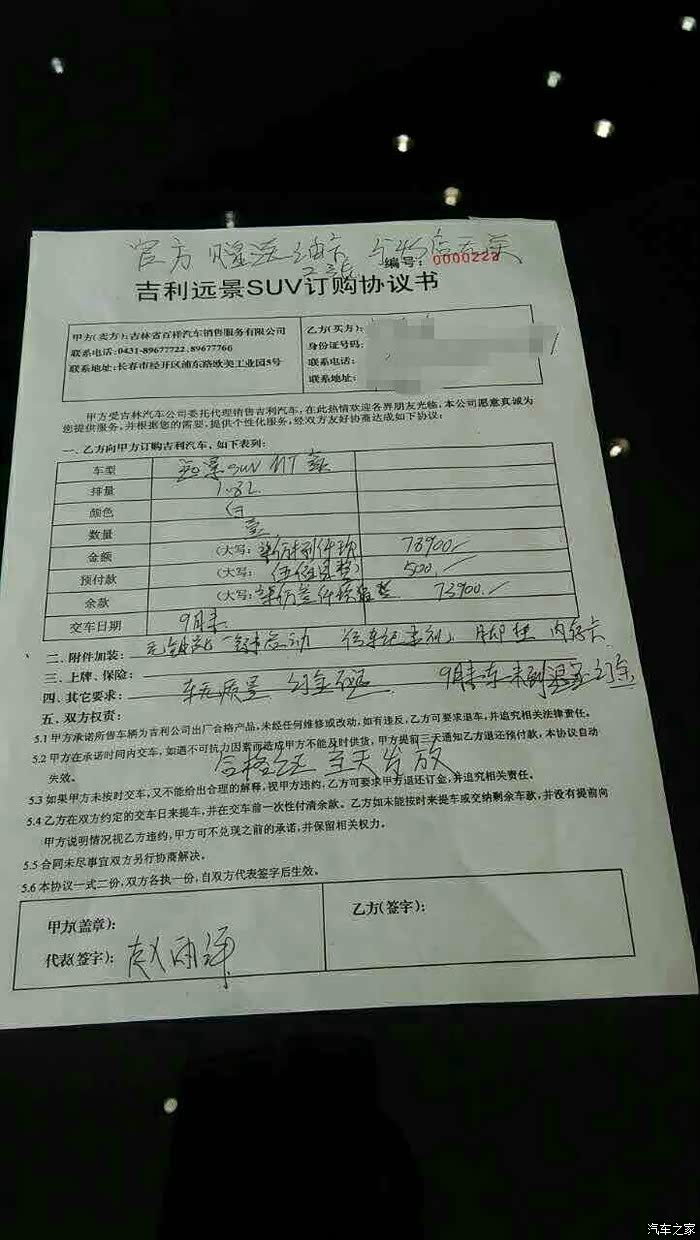 官方 赠送油卡
编号：0000222
吉利远景SUV订购协议书
甲方(卖方)：吉林省百祥汽车销售服务有限公司
联系电话：0431-89677722，89677766
联系地址：长春市经开区浦东路欧美工业园5号
乙方(买方)：
身份证号码：
联系电话：
联系地址：
甲方受吉林汽车公司委托代理销售吉利汽车，在此热情欢迎各界朋友光临，本公司愿意真诚为
您提供服务，并根据您的需要，提供个性化服务，经双方友好协商达成如下协议：
一、乙方向甲方订购吉利汽车，如下表列：
车型 远景SUV MT
排量 1.8L
颜色 白
数量 壹
金额 (大写： 73900.
预付款 (大写：伍佰 500.
余款 (大写： 73900.
交车日期 9月末
二、附件加装： 一键启动 行车记录仪 脚垫 内存卡
三、上牌、保险：
四、其它要求： 车无质量 订金不退 9月末车未到退还订金
五、双方权责：
5.1 甲方承诺所售车辆为吉利公司出厂合格产品，未经任何维修或改动，如有违反，乙方可要求退车，并追究相关法律责任。
5.2 甲方在承诺时间内交车，如遇不可抗力因素而造成甲方不能及时供货，甲方提前三天通知乙方退还预付款，本协议自动
失效。
合格证 当天发放
5.3 如果甲方未按时交车，又不能给出合理的解释，视甲方违约，乙方可要求甲方退还订金，并追究相关责任。
5.4 乙方在双方约定的交车日来提车，并在交车前一次性付清余款。乙方如未能按时来提车或交纳剩余车款，并没有提前向
甲方说明情况视乙方违约，甲方可不兑现之前的承诺，并保留相关权力。
5.5 合同未尽事宜双方另行协商解决。
5.6 本协议一式二份，双方各执一份，自双方代表签字后生效。
甲方(盖章)：
代表(签字)：赵雨
乙方(签字)：
汽车之家